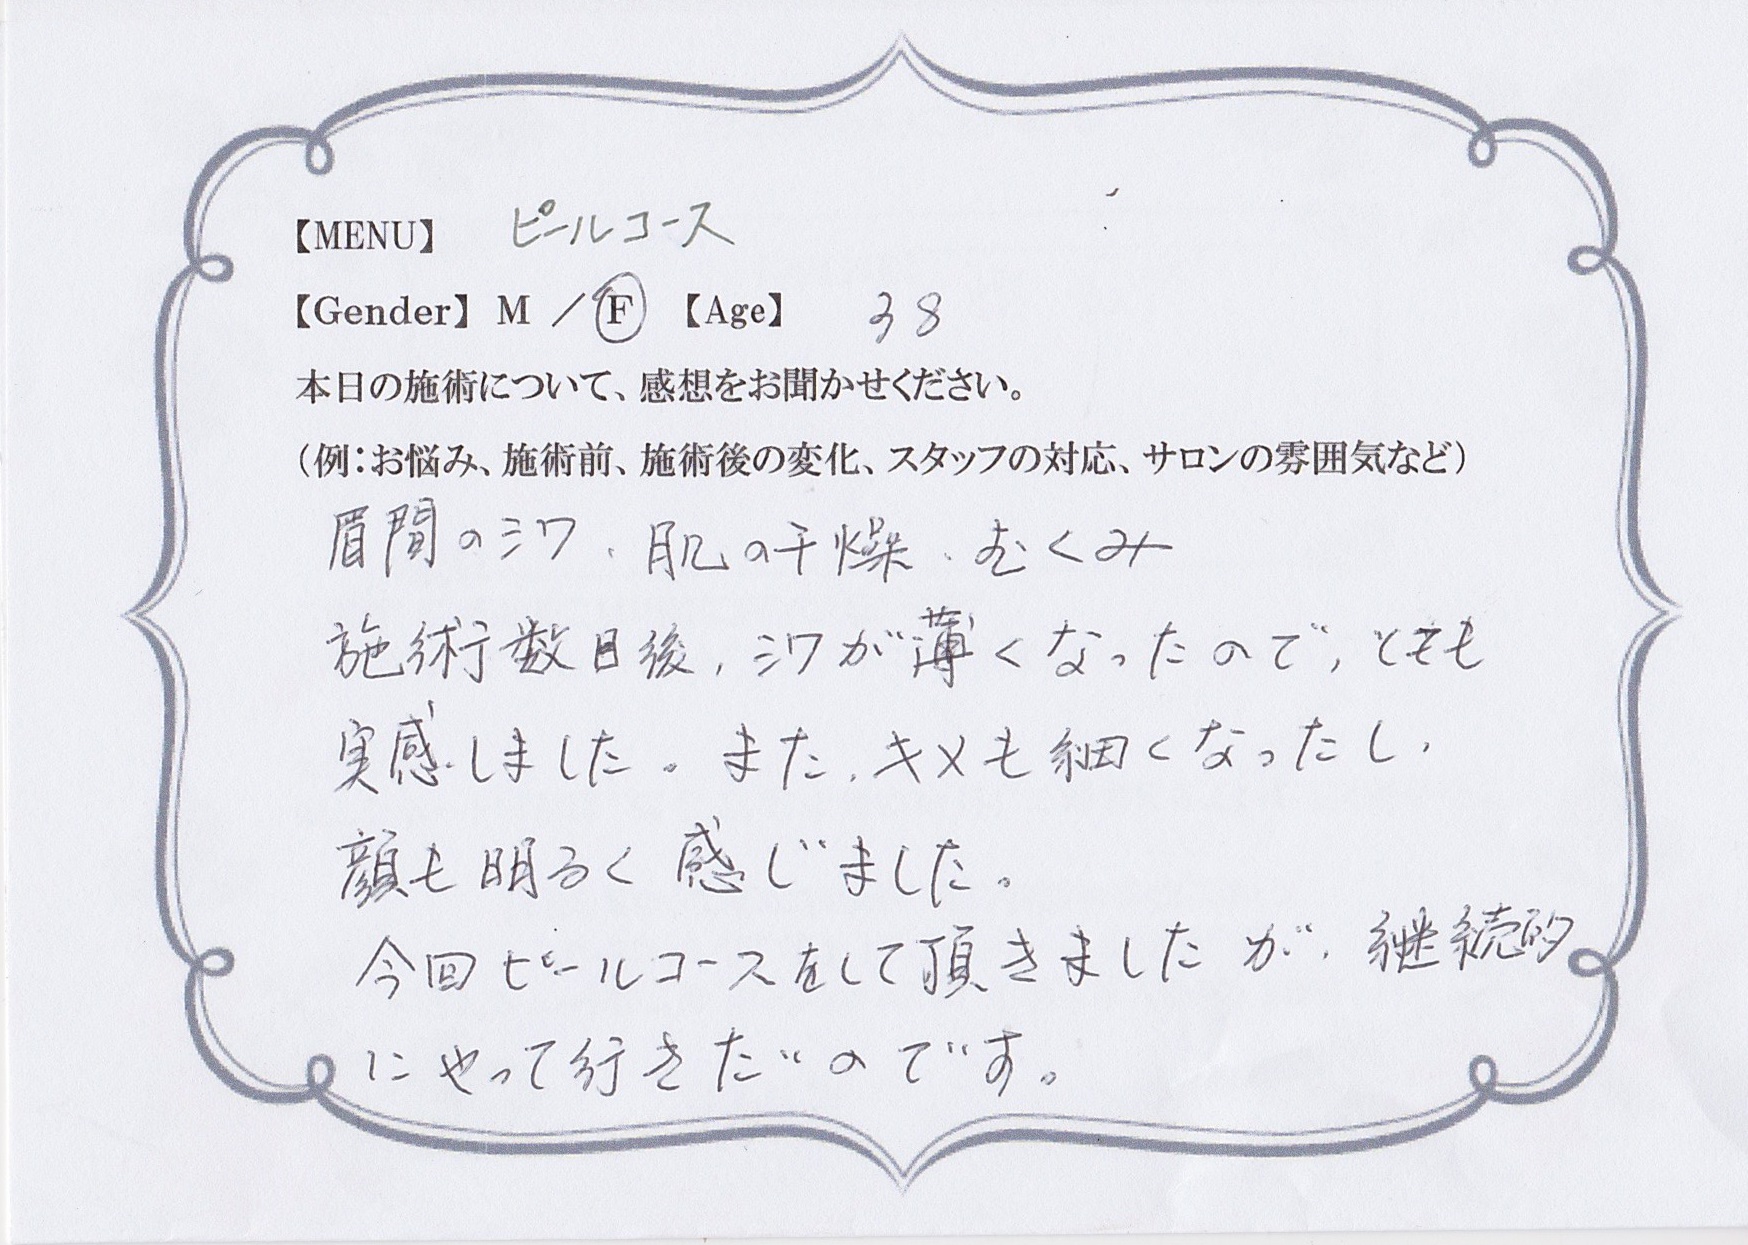 【MENU】 ピールコース
【Gender】 M ／ F 【Age】 38
本日の施術について、感想をお聞かせください。
（例：お悩み、施術前、施術後の変化、スタッフの対応、サロンの雰囲気など）
眉間のシワ、肌の干燥、むくみ
施術数日後、シワが薄くなったので、とても
実感しました。また、キメも細くなったし、
顔も明るく感じました。
今回ピールコースをして頂きましたが、継続的
にやって行きたいのです。